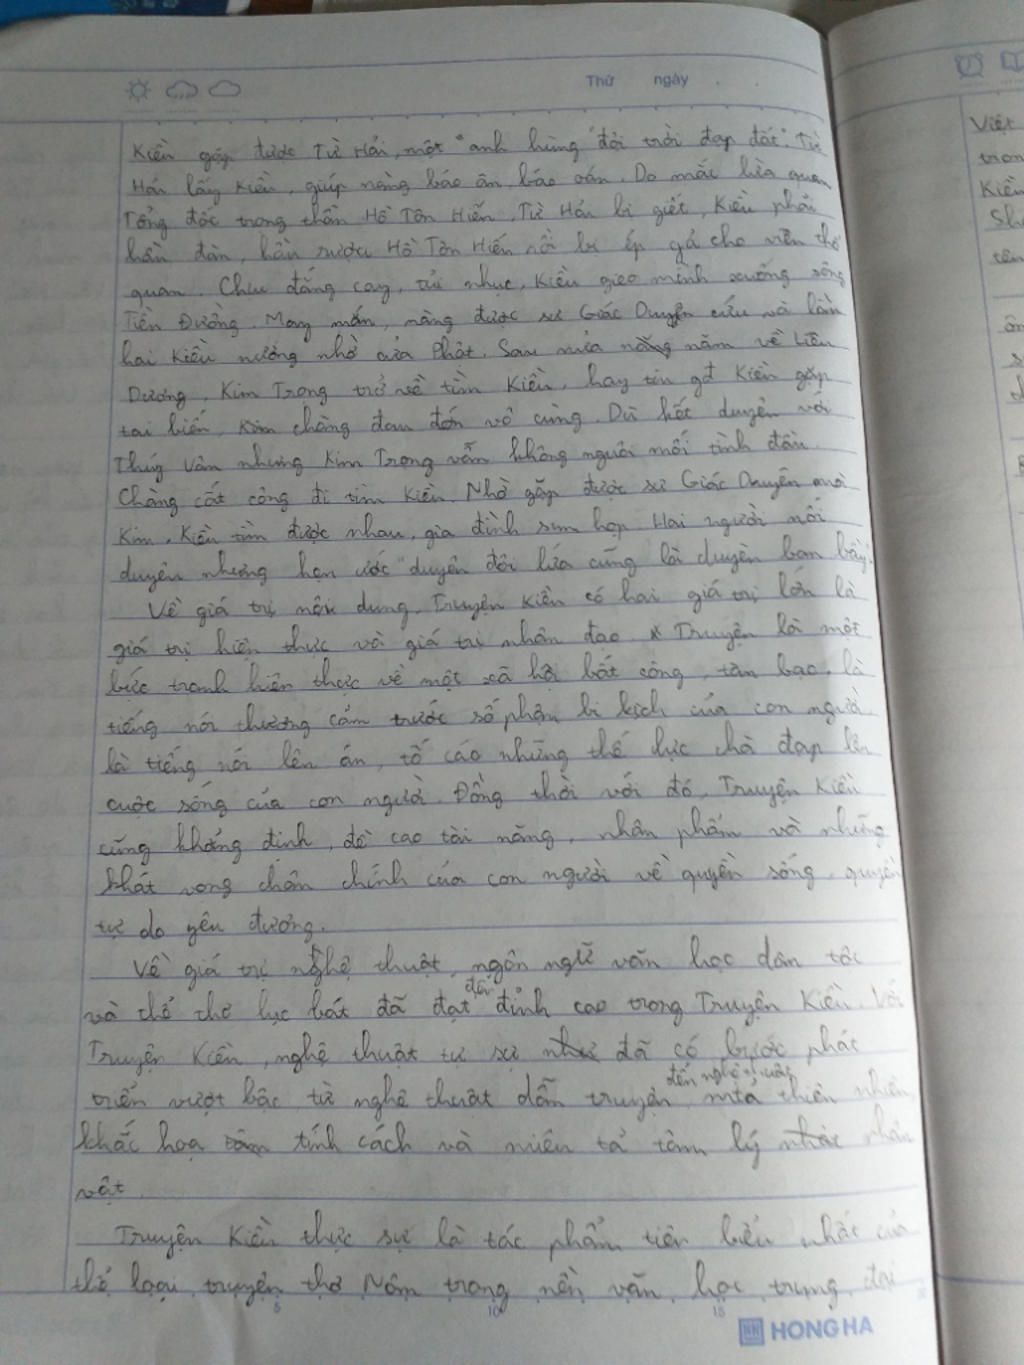 Thứ ngày
Kiều gặp được Từ Hải, một "anh hùng "đội trời đạp đất". Từ
Hải lấy Kiều, giúp nàng báo ân, báo oán. Do mắc lừa quan
Tổng đốc trọng thần Hồ Tôn Hiến, Từ Hải bị giết, Kiều phải
hầu đàn, hầu rượu Hồ Tôn Hiến rồi bị ép gả cho viên thổ
quan. Chịu đắng cay, tủi nhục, Kiều gieo mình xuống sông
Tiền Đường. May mắn, nàng được sư Giác Duyên cứu và lần
hai Kiều nương nhờ cửa Phật. Sau nửa năm về Liêu
Dương, Kim Trọng trở về tìm Kiều, hay tin gđ Kiều gặp
tai biến, chàng đau đớn vô cùng. Dù kết duyên với
Thúy Vân nhưng Kim Trọng vẫn không nguôi mối tình đầu.
Chàng cất công đi tìm Kiều. Nhờ gặp được sư Giác Duyên mà
Kim, Kiều tìm được nhau, gia đình sum họp. Hai người nối
duyên nhưng hẹn ước "duyên đôi lứa cũng là duyên bạn bầy".
Về giá trị nội dung, Truyện Kiều có hai giá trị lớn là
giá trị hiện thực và giá trị nhân đạo. Truyện là một
bức tranh hiện thực về một xã hội bất công, tàn bạo, là
tiếng nói thương cảm trước số phận bi kịch của con người
là tiếng nói lên án, tố cáo những thế lực chà đạp lên
cuộc sống của con người. Đồng thời với đó, Truyện Kiều
cũng khẳng định, đề cao tài năng, nhân phẩm và những
khát vọng chân chính của con người về quyền sống, quyền
tự do yêu đương.
Về giá trị nghệ thuật, ngôn ngữ văn học dân tộc
và thể thơ lục bát đã đạt đến đỉnh cao trong Truyện Kiều. Với
Truyện Kiều, nghệ thuật tự sự đã có bước phát
triển vượt bậc từ nghệ thuật dẫn truyện đến nghệ thuật mtả thiên nhiên,
khắc họa tính cách và miêu tả tâm lý nhân
vật.
Truyện Kiều thực sự là tác phẩm tiêu biểu nhất của
thể loại truyện thơ Nôm trong nền văn học trung đại
5 10 15
HONG HA
Việt
Kiều